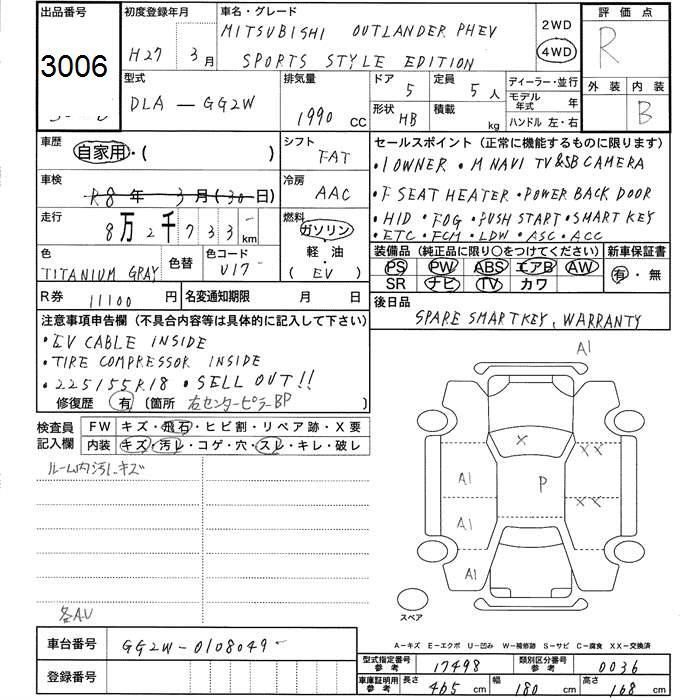 出品番号
3006
初度登録年月
H27 3月
車名・グレード
MITSUBISHI OUTLANDER PHEV
SPORTS STYLE EDITION
2WD
4WD
評価点
R
外装 内装
B
型式
DLA - GG2W
排気量
1990 cc
ドア 5
定員 5人
形状 HB
積載 kg
ディーラー・並行
モデル年式 年
ハンドル 左・右
車歴
自家用・( )
シフト
FAT
セールスポイント (正常に機能するものに限ります)
・1OWNER ・M NAVI TV &SB CAMERA
・F SEAT HEATER ・POWER BACK DOOR
・HID ・FOG ・PUSH START ・SMART KEY
・ETC ・FCM ・LDW ・ASC ・ACC
車検
R8年 3月(30日)
冷房
AAC
走行
8万2千733 km
燃料
ガソリン
軽・油
(EV)
色
TITANIUM GRAY
色替
色コード
U17
装備品 (純正品に限り○をつけてください)
PS PW ABS エアB AW
SR ナビ TV カワ
新車保証書
有・無
R券 11100 円
名変通知期限 月 日
後日品
SPARE SMARTKEY, WARRANTY
注意事項申告欄 (不具合内容等は具体的に記入して下さい)
・EV CABLE INSIDE
・TIRE COMPRESSOR INSIDE
・225/55R18 ・SELL OUT!!
修復歴 有 (箇所 右センターピラーBP )
検査員記入欄
FW キズ・飛石・ヒビ割・リペア跡・X要
内装 キズ・汚レ・コゲ・穴・スレ・キレ・破レ
ルーム内汚レ・キズ
各AU
A1
X
XX
A1
P
XX
A1
A1
スペア
A-キズ E-エクボ U-凹み W-補修跡 S-サビ C-腐食 XX-交換済
車台番号 GG2W-0108049
登録番号
型式指定番号参考 17498
類別区分番号参考 0036
車庫証明用参考 長さ 465 cm 幅 180 cm 高さ 168 cm